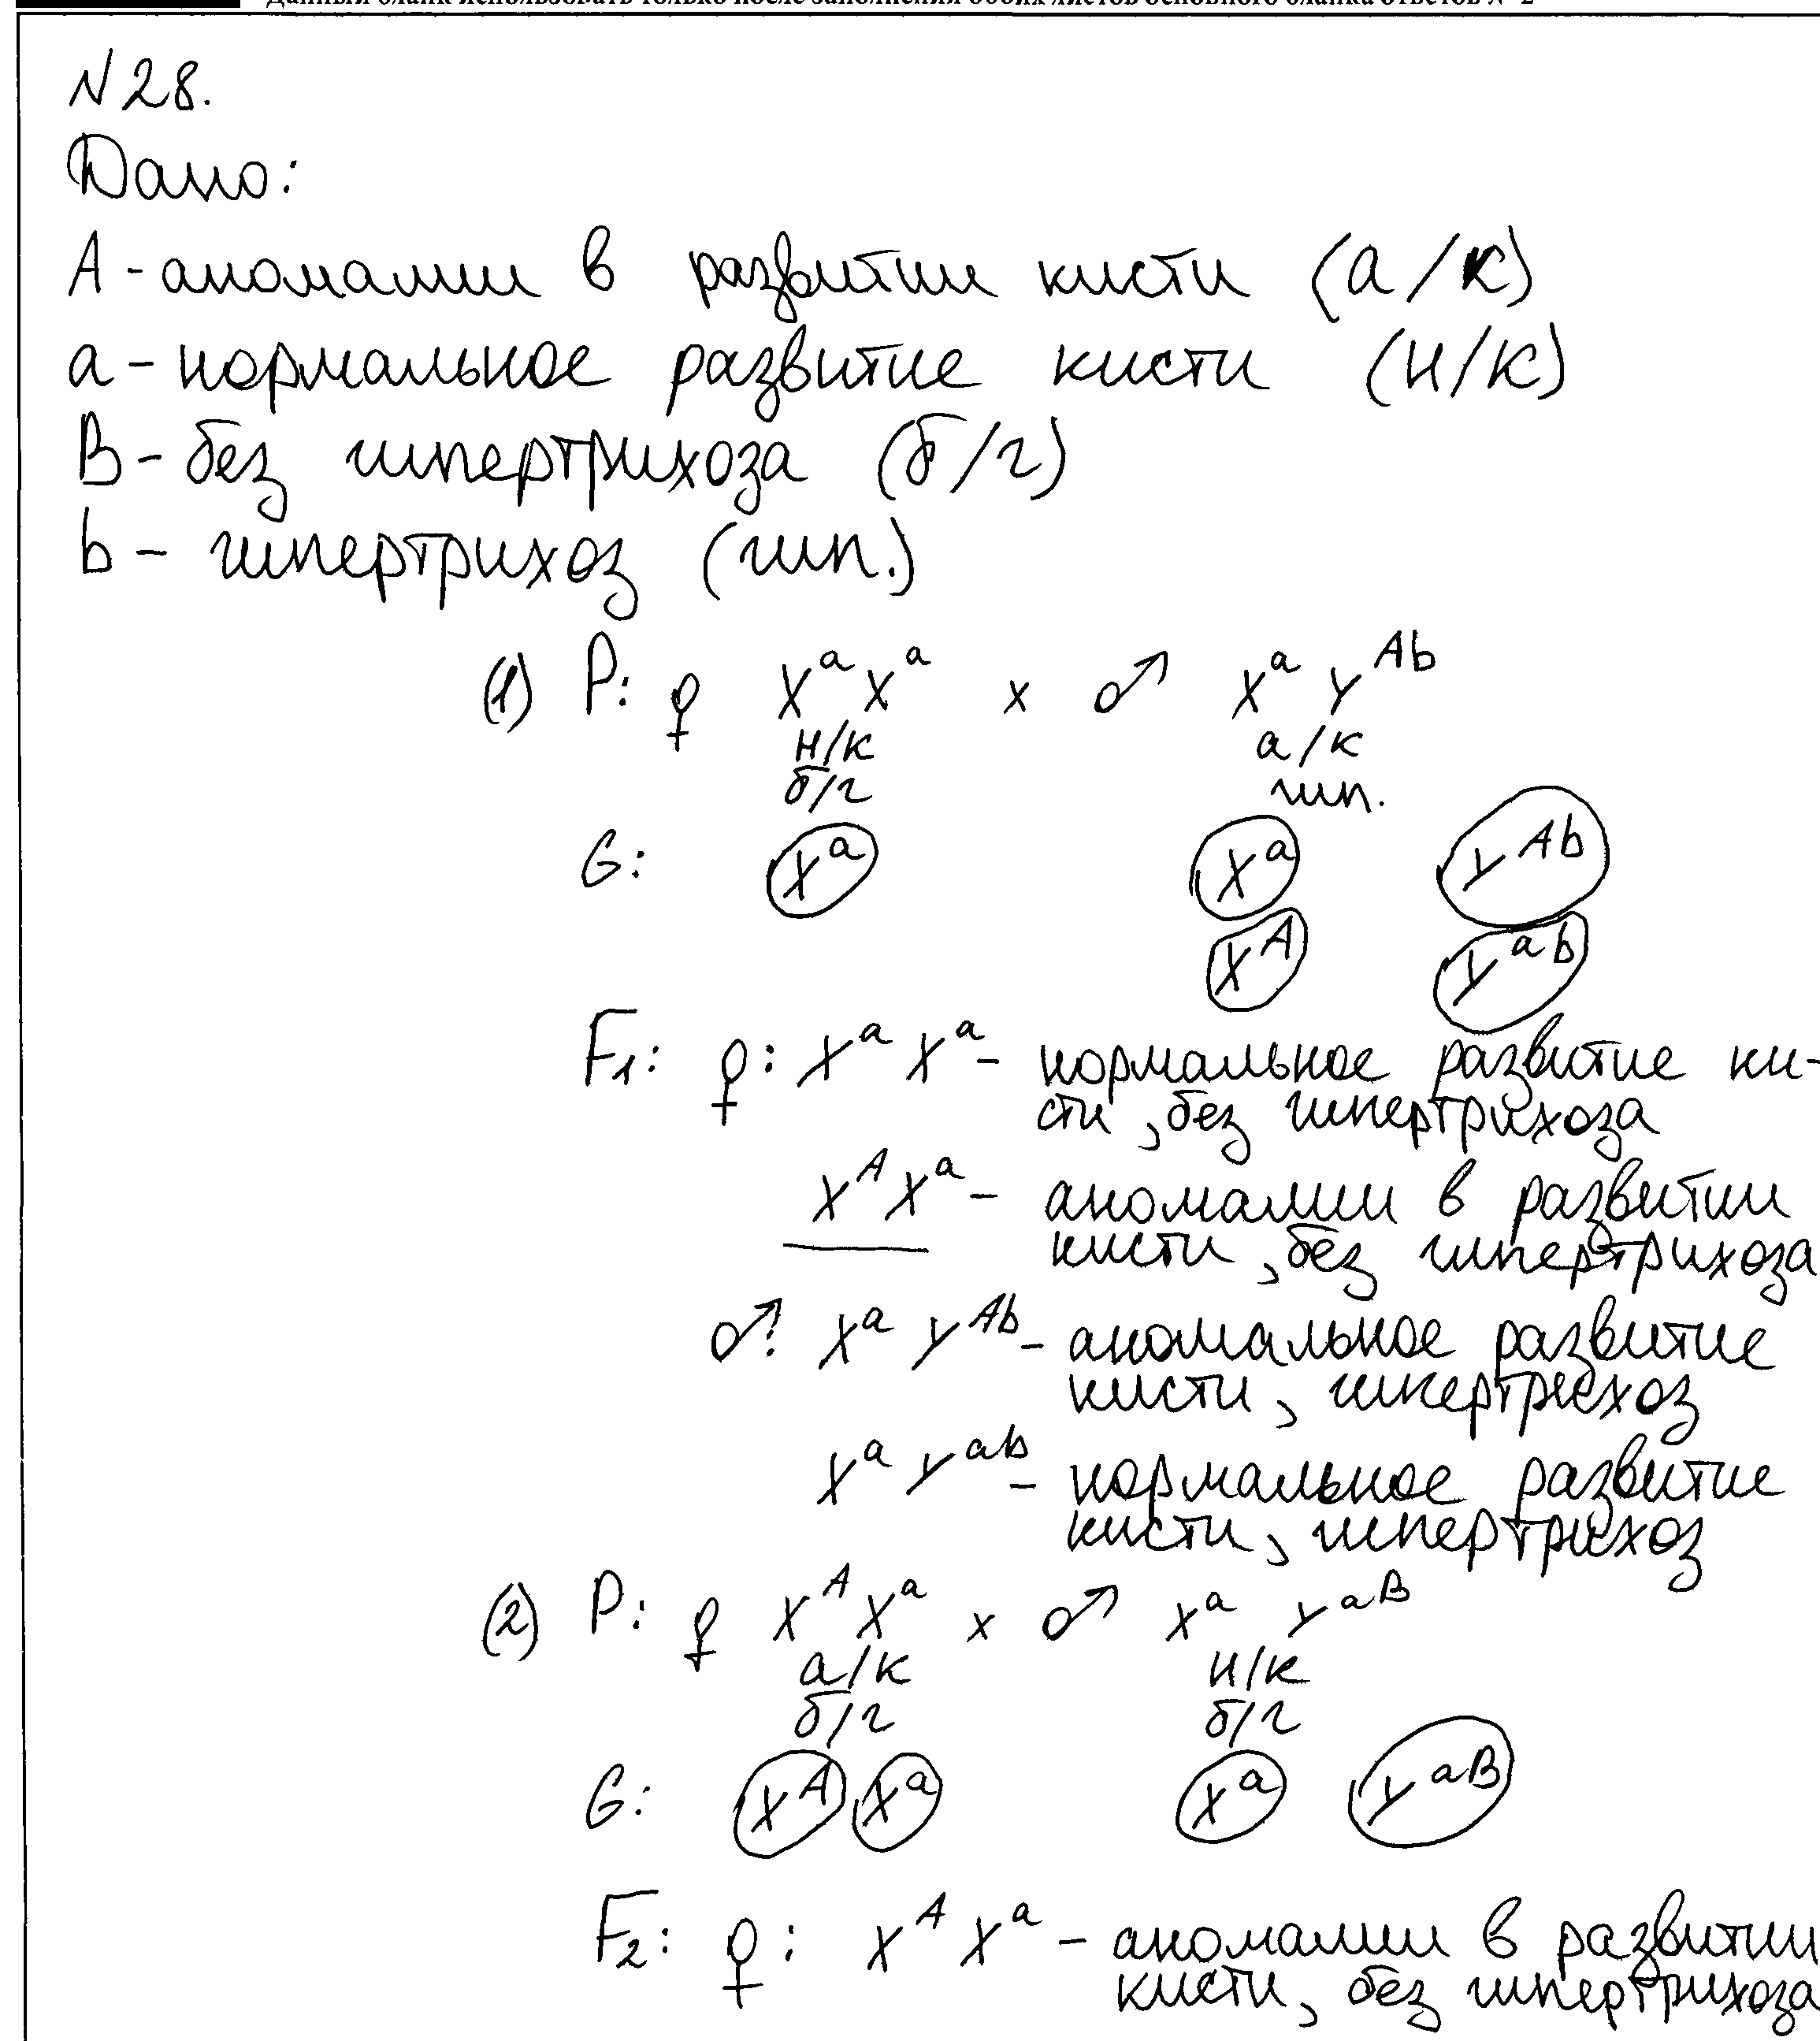 Данный бланк использовать только после заполнения обоих листов основного бланка ответов № 2
N28.
Дано:
A - аномалии в развитии кисти (а/к)
a - нормальное развитие кисти (н/к)
B - без гипертрихоза (б/г)
b - гипертрихоз (гип.)
(1) P: ♀ XᵃXᵃ x ♂ Xᵃ Yᴬᵇ
н/к а/к
б/г гип.
G: Xᵃ Xᵃ Yᴬᵇ
Xᴬ Yᵃᵇ
F₁: ♀: Xᵃ Xᵃ - нормальное развитие ки-
сти, без гипертрихоза
XᴬXᵃ - аномалии в развитии
кисти, без гипертрихоза
♂: Xᵃ Yᴬᵇ - аномальное развитие
кисти, гипертрихоз
Xᵃ Yᵃᵇ - нормальное развитие
кисти, гипертрихоз
(2) P: ♀ XᴬXᵃ x ♂ Xᵃ Yᵃᴮ
а/к н/к
б/г б/г
G: Xᴬ Xᵃ Xᵃ Yᵃᴮ
F₂: ♀: Xᴬ Xᵃ - аномалии в развитии
кисти, без гипертрихоза